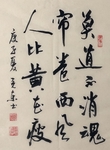 莫道不消魂
帘卷西风
人比黄花瘦
庚子夏